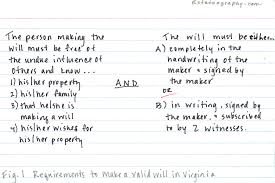 estateography.com
The person making the
will must be free of
the undue influence of
others and know...
1) his/her property
2) his/her family
3) that he/she is
making a will
4) his/her wishes for
his/her property
AND
The will must be either...
A) completely in the
handwriting of the
maker + signed by
the maker
OR
B) in writing, signed by
the maker, + subscribed
to by 2 witnesses.
Fig. 1 Requirements to Make a valid will in Virginia